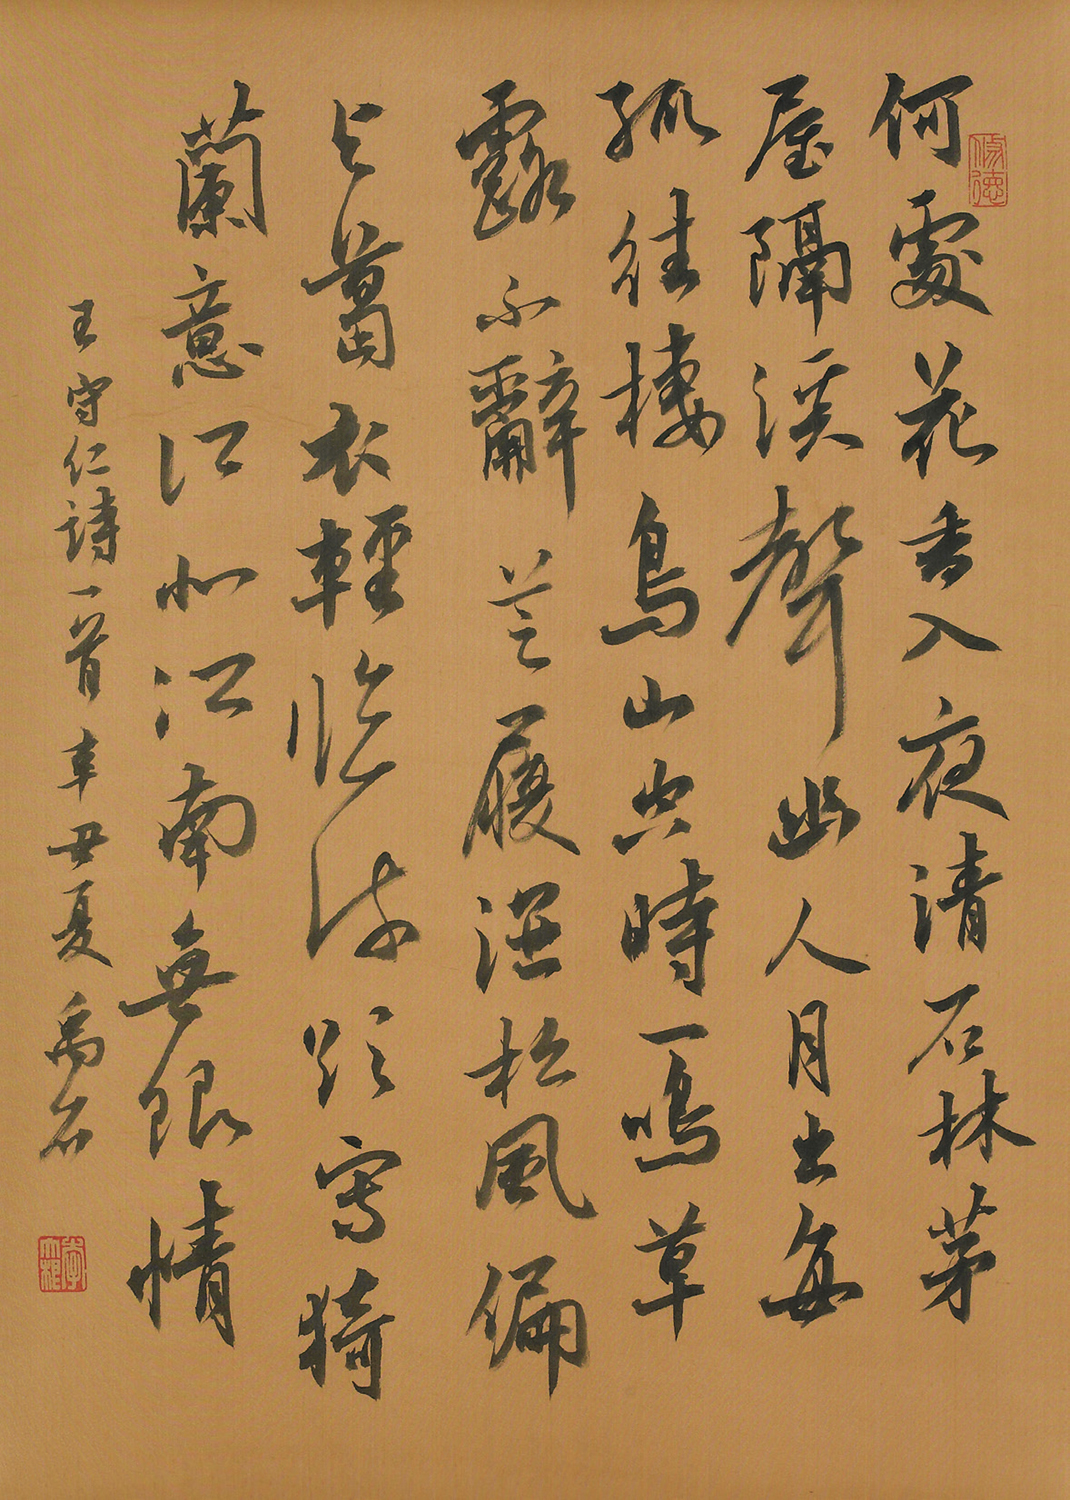 何處花香入夜清石林茅
屋隔溪聲幽人月出每
孤往棲鳥山空時一鳴草
露不辭芒屨濕松風偏
与葛衣輕臨流欲寫猗
蘭意江北江南無限情
王守仁詩一首辛丑夏禹石